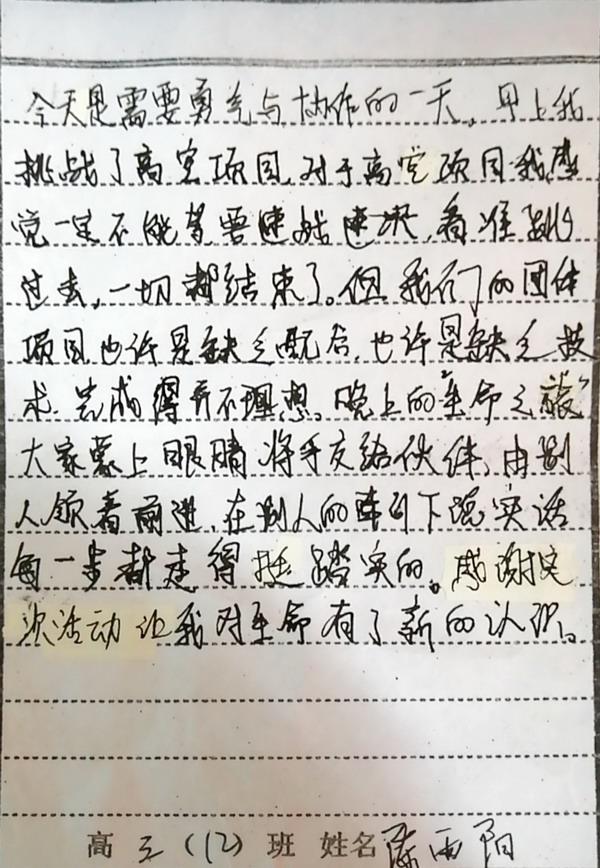 今天是需要勇气与协作的一天。早上我
挑战了高空项目,对于高空项目我感
觉一定不能等要速战速决,看准就
过去,一切都结束了。但我们的团体
项目也许是缺乏配合,也许是缺乏技
术,完成得并不理想。晚上的“生命之旅”
大家蒙上眼睛将手交给伙伴,由别
人领着前进,在别人的牵引下说实话
每一步都走得挺踏实的。感谢这
次活动让我对生命有了新的认识。
高三(12)班 姓名 陈雨阳